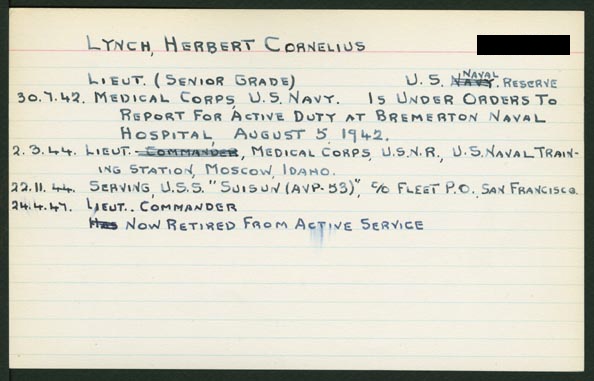 LYNCH, HERBERT CORNELIUS
LIEUT. (SENIOR GRADE) U.S. NAVY NAVAL RESERVE
30.7.42. MEDICAL CORPS, U.S. NAVY. IS UNDER ORDERS TO
REPORT FOR ACTIVE DUTY AT BREMERTON NAVAL
HOSPITAL, AUGUST 5, 1942.
2.3.44. LIEUT. COMMANDER, MEDICAL CORPS, U.S.N.R., U.S. NAVAL TRAIN-
ING STATION, MOSCOW, IDAHO.
22.11.44. SERVING, U.S.S. "SUISUN (AVP-53)", C/O FLEET P.O., SAN FRANCISCO.
24.4.47. LIEUT. COMMANDER
HAS NOW RETIRED FROM ACTIVE SERVICE